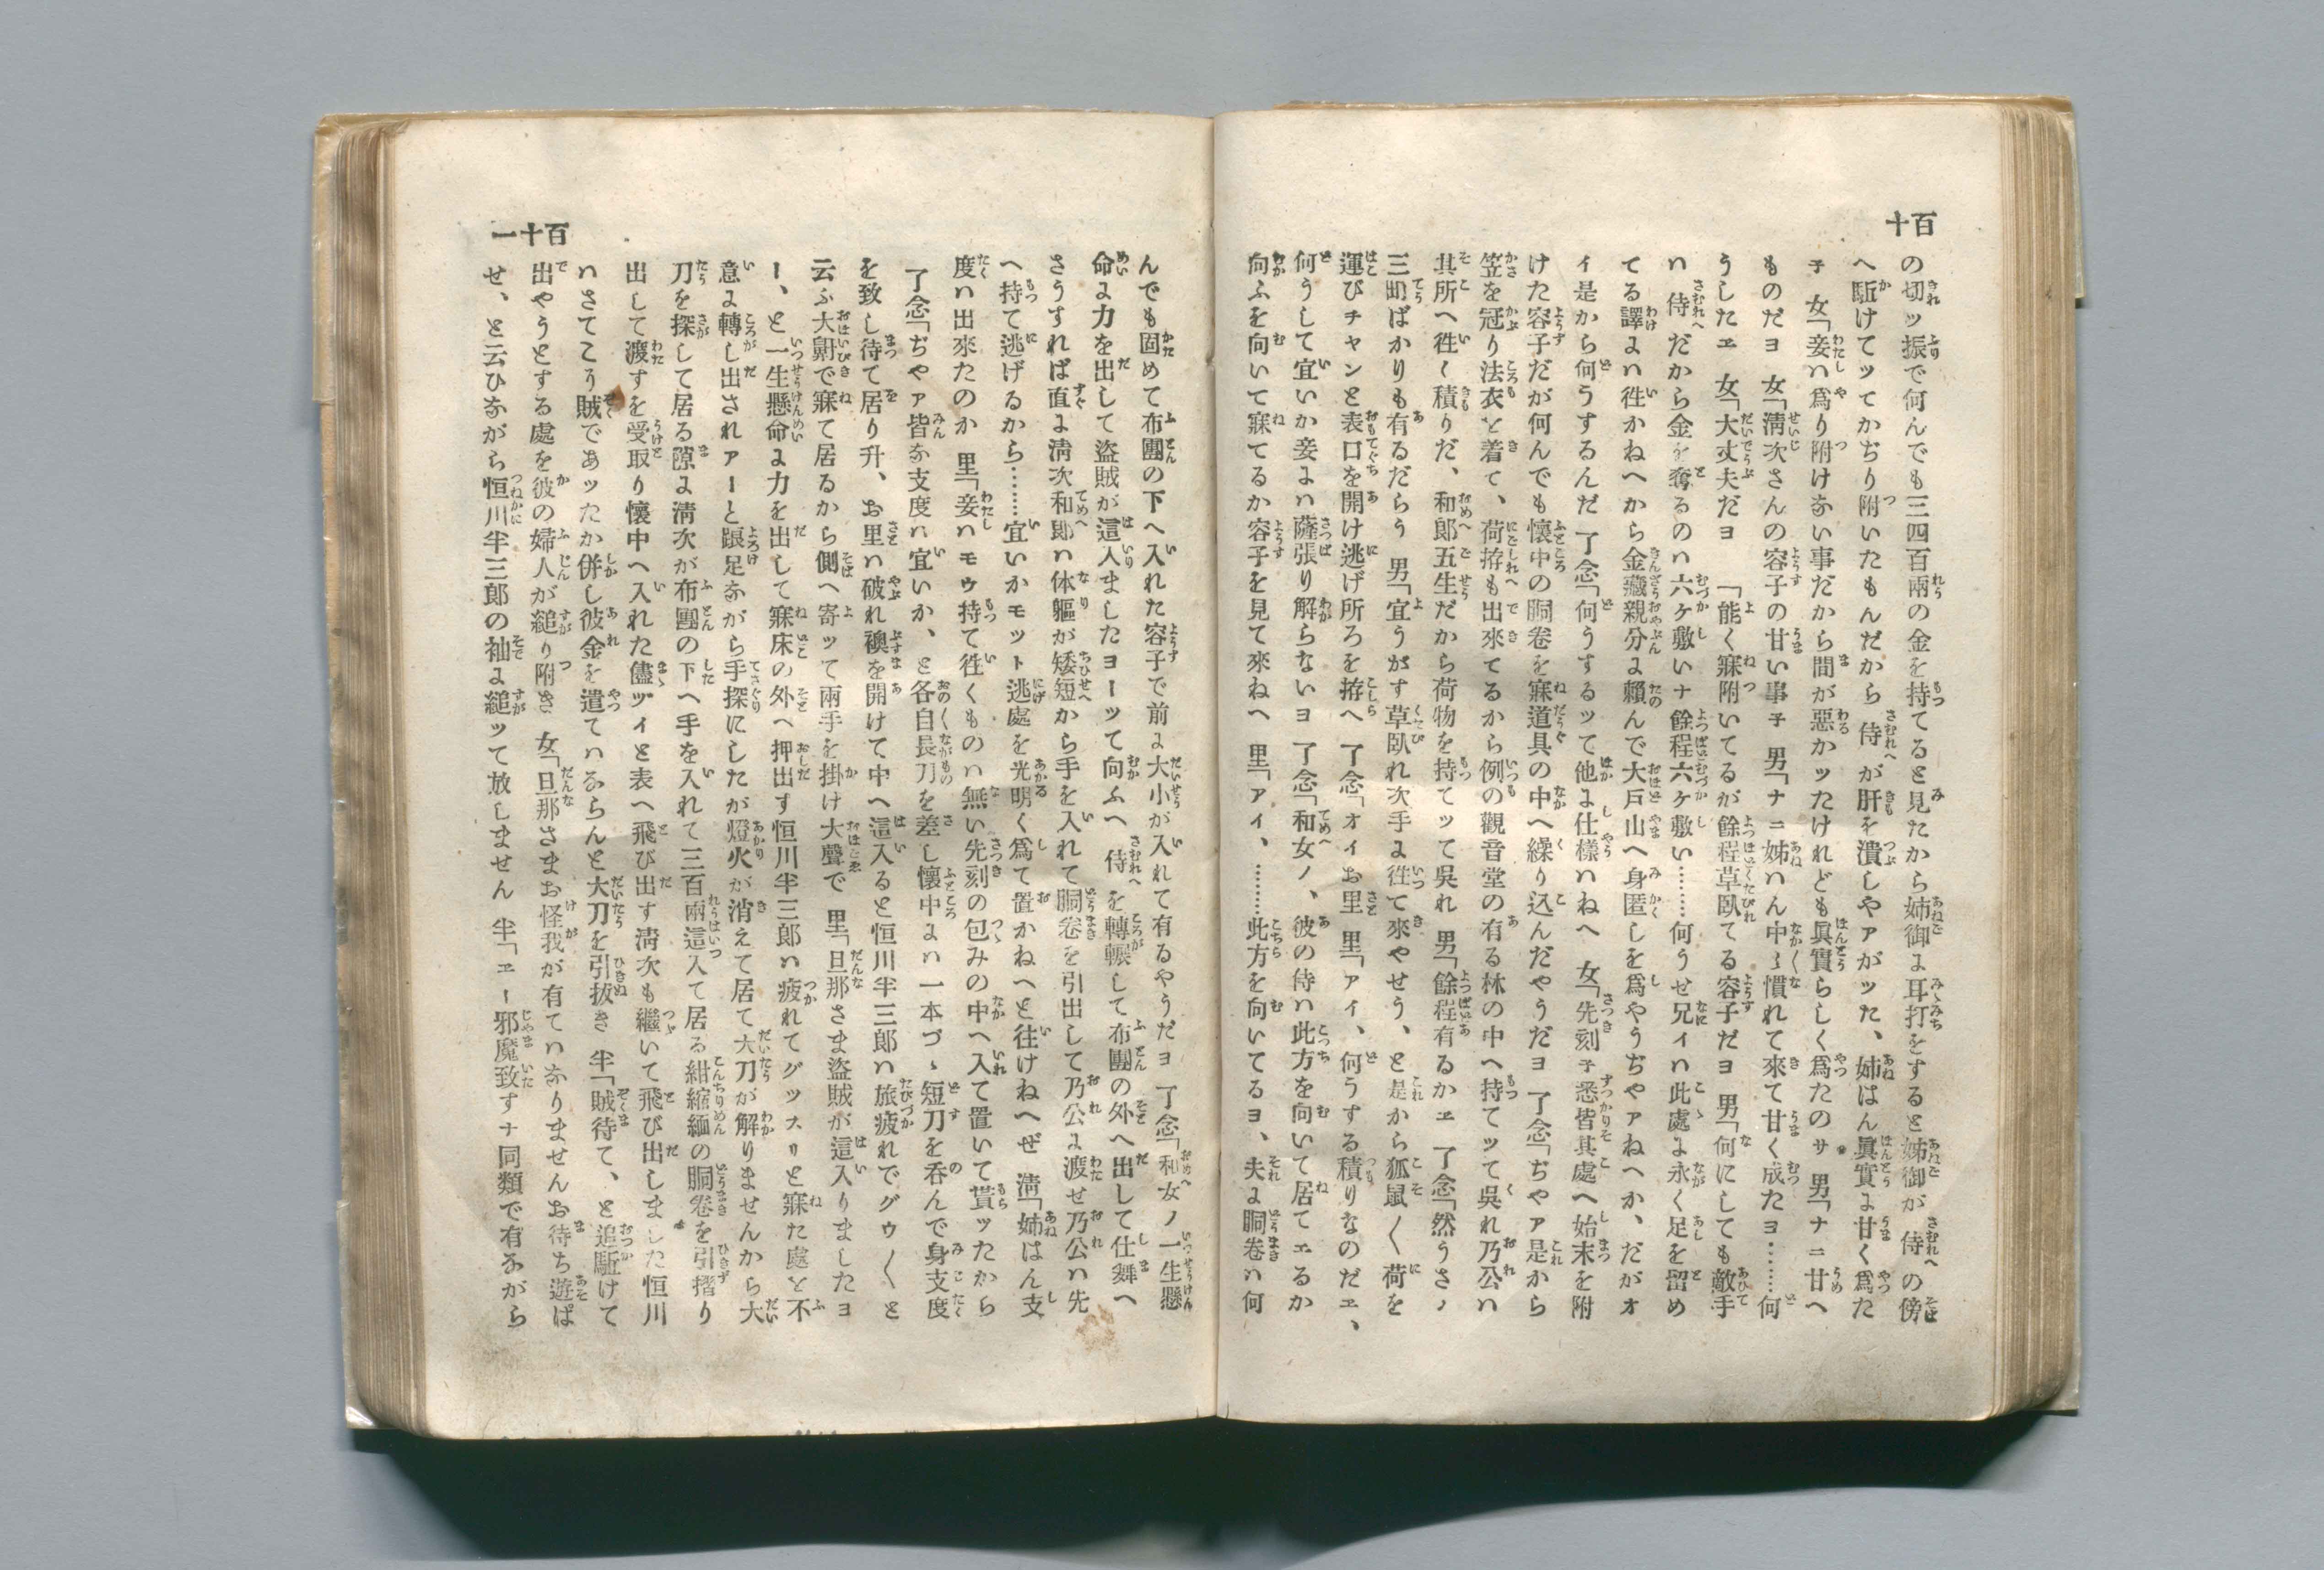 十百
の切ッ振で何んでも三四百兩の金を持てると見たから姉御ょ耳打をすると姉御が侍の傍
へ駈けてッてかぢり附いたもんだから侍が肝を潰しやァがッた、姉はん眞實ょ甘く爲た
子女「妾ハ爲り附けあい事だから間が惡かッたけれども眞實らしく爲たのサ男「ナニ甘へ
ものだヨ女「淸次さんの容子の甘い事子男「ナニ姉ハん中〻慣れて來て甘く成たヨ………何
うしたヱ女「大丈夫だヨ「能く寐附いてるが餘程草臥てる容子だヨ男「何にしても敵手
ハ侍だから金を奪るのハ六ケ敷いナ餘程六ケ敷い……何うせ兄イハ此處ょ永く足を留め
てる譯ょハ徃かねへから金藏親分ょ賴んで大戸山へ身匿しを爲やうぢやァねへか、だがオ
イ是から何うするんだ了念「何うするッて他ょ仕樣ハねへ女「先刻子悉皆其處へ始末を附
けた容子だが何んでも懷中の胴卷を寐道具の中へ繰り込んだやうだヨ了念「ぢやァ是から
笠を冠り法衣を着て、荷拵も出來てるから例の觀音堂の有る林の中へ持てッて吳れ乃公ハ
其所へ徃く積りだ、和郎五生だから荷物を持てッて吳れ男「餘程有るかヱ了念「然うさノ
三町ばかりも有るだらう男「宜うがす草臥れ次手ょ徃て來やせう、と是から狐鼠〱荷を
運びチャンと表口を開け逃げ所ろを拵へ了念「オイお里里「アイ、何うする積りなのだヱ、
何うして宜いか妾ょハ薩張り解らないヨ了念「和女ノ、彼の侍ハ此方を向いて居てヱるか
向ふを向いて寐てるか容子を見て來ねへ里「アイ、………此方を向いてるヨ、夫ょ胴卷ハ何
一十百
んでも固めて布團の下へ入れた容子で前ょ大小が入れて有るやうだヨ了念「和女ノ一生懸
命ょ力を出して盜賊が這入ましたヨーッて向ふへ侍を轉輾して布團の外へ出して仕舞へ
さうすれば直ょ淸次和郎ハ体軀が矮短から手を入れて胴卷を引出して乃公ょ渡せ乃公ハ先
へ持て逃げるから……宜いかモット逃處を光明く爲て置かねへと徃けねへぜ淸「姉はん支
度ハ出來たのか里「妾ハモウ持て徃くものハ無い先刻の包みの中へ入て置いて貰ッたから
了念「ぢやァ皆あ支度ハ宜いか、と各自長刀を差し懷中ょハ一本づゝ短刀を呑んで身支度
を致し待て居り升、お里ハ破れ襖を開けて中へ這入ると恒川半三郎ハ旅疲れでグウ〱と
云ふ大鼾で寐て居るから側へ寄ッて兩手を掛け大聲で里「旦那さま盜賊が這入りましたヨ
ー、と一生懸命ょ力を出して寐床の外へ押出す恒川半三郎ハ疲れてグッスリと寐た處を不
意ょ轉し出されアーと踉足あがら手探にしたが燈火が消えて居て大刀が解りませんから大
刀を探して居る隙ょ淸次が布團の下へ手を入れて三百兩這入て居る紺縮緬の胴卷を引摺り
出して渡すを受取り懷中へ入れた儘ヅイと表へ飛び出す淸次も繼いて飛び出しました恒川
ハさてこう賊であッたか併し彼金を遣てハあらんと大刀を引拔き半「賊待て、と追駈けて
出やうとする處を彼の婦人が縋り附き女「旦那さまお怪我が有てハありませんお待ち遊ば
せ、と云ひあがら恒川半三郎の袖ょ縋ッて放しません半「ヱー邪魔致すナ同類で有あがら